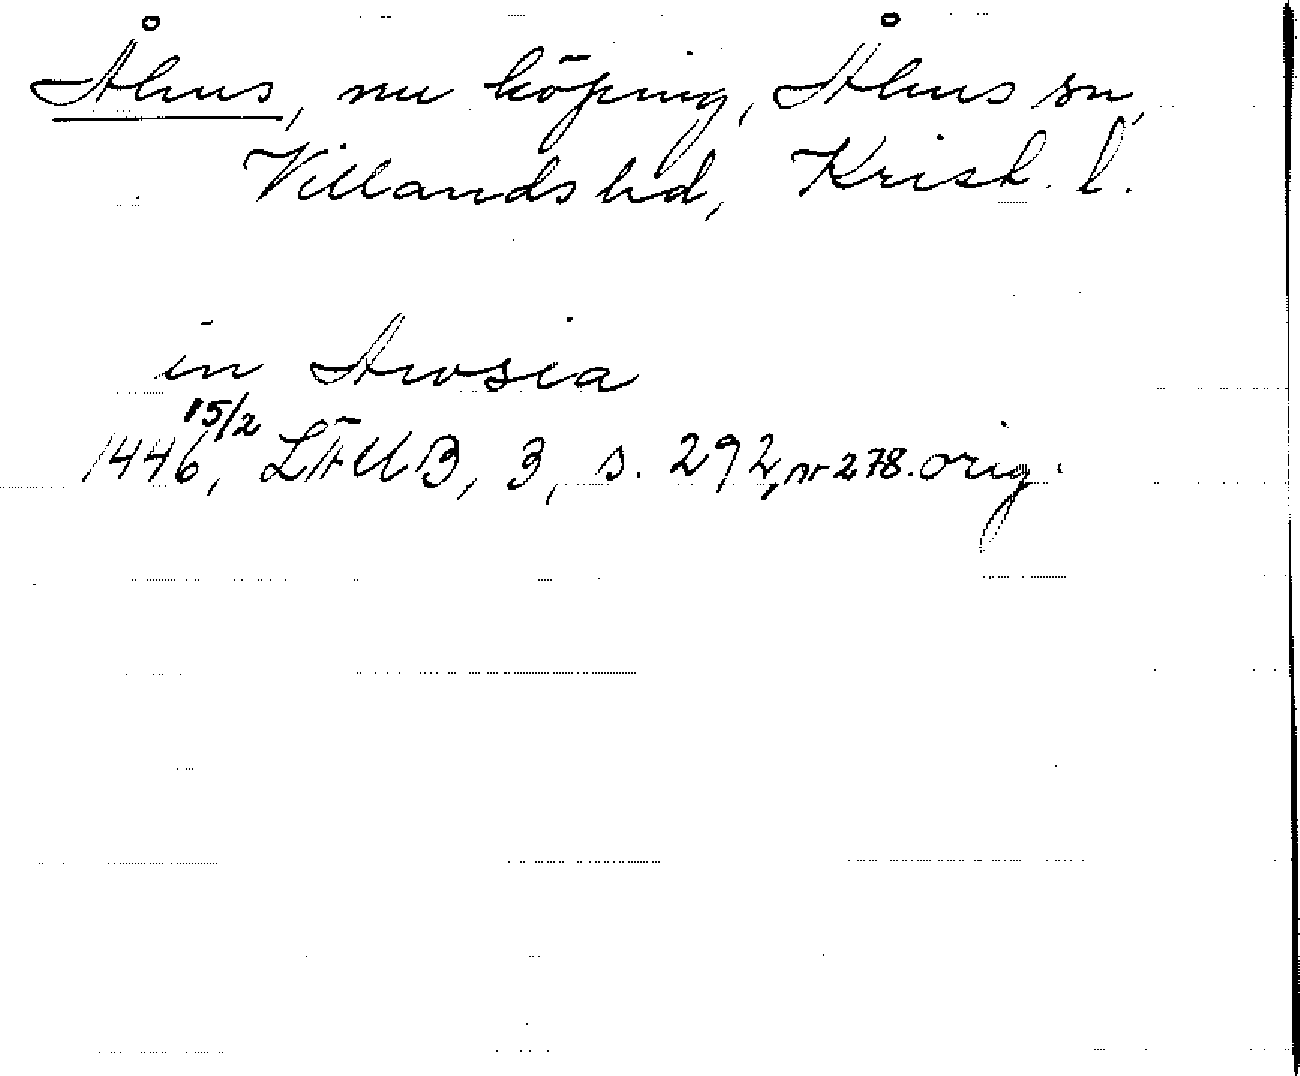 Åhus, nu köping, Åhus sn,
Villands hd, Krist. l.
in Arosia
1446 15/2, LÄUB, 3, s. 292, nr 278. orig.